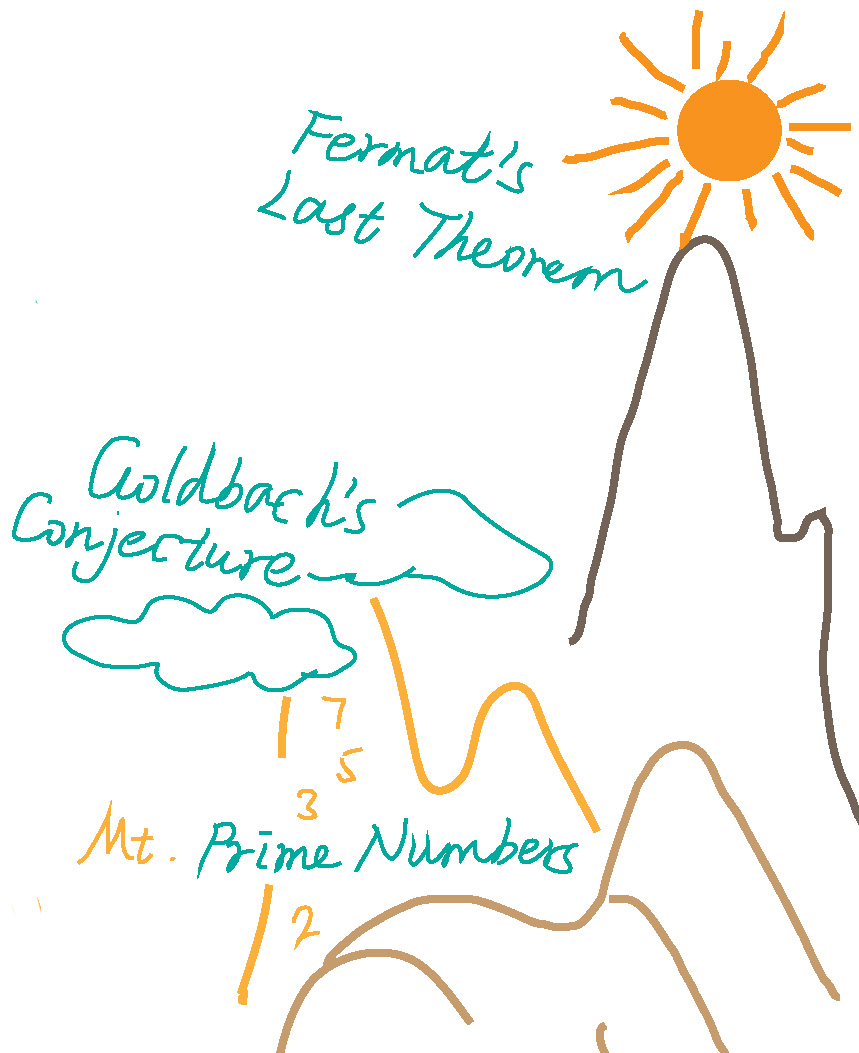 Fermat's
Last Theorem
Goldbach's
Conjecture
7
5
3
Mt. Prime Numbers
2